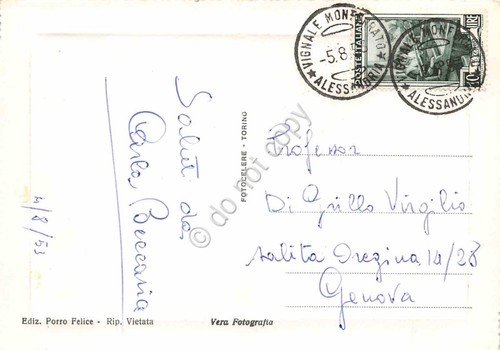 VIGNALE MONFERRATO
-5.8.
★ ALESSANDRIA ★
POSTE ITALIANE
LIRE
VIGNALE MONF
ALESSANDRIA
Saluti da
Carla Beccaria
4/8/53
FOTOCELERE - TORINO
© do not copy
Professor
Di Grillo Virgilio
salita Oregina 14/23
Genova
Ediz. Porro Felice - Rip. Vietata
Vera Fotografia